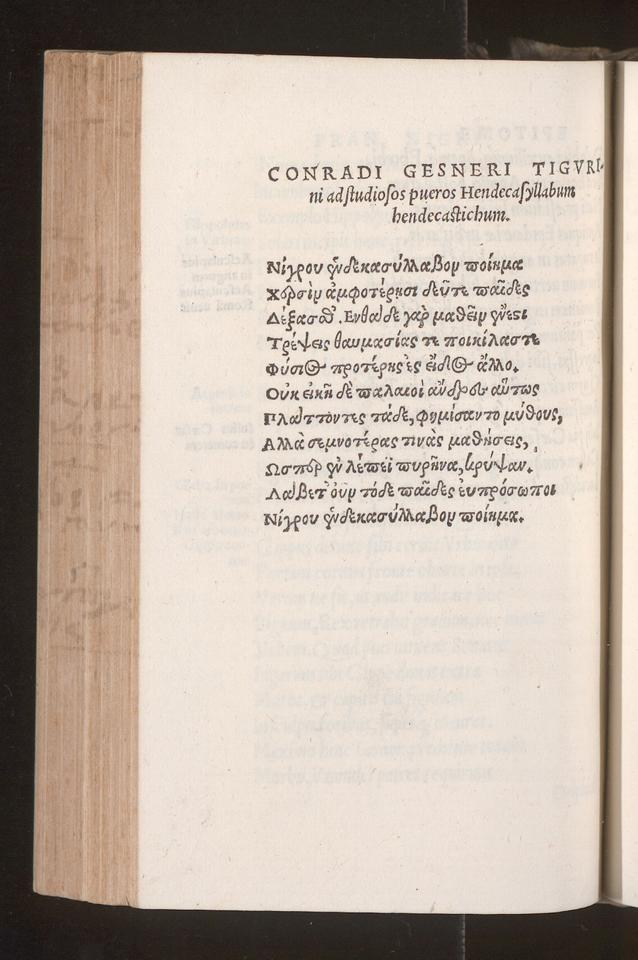 CONRADI GESNERI TIGVRI-
ni ad studiosos pueros Hendecasyllabum
hendecastichum.
Νίγρου ἑνδεκασύλλαβον ποίημα
Χερσὶν ἀμφοτέρῃσι δεῦτε παῖδες
Δέξασθ'. Ενθάδε γὰρ μαθεῖν ἔνεστι
Τρέψεις θαυμασίας τε ποικίλας τε
Φύσιος προτέρης ἐς εἶδος ἄλλο.
Οὐκ εἰκῆ δὲ παλαιοὶ ἄνδρες αὔτως
Πλάττοντες τάδε, φημίσαντο μύθους,
Αλλὰ σεμνοτέρας τινὰς μαθήσεις,
Ωσπερ ἐν λέπεϊ πυρῆνα, κρύψαν.
Λάβετ' οὖν τόδε παῖδες εὐπρόσωποι
Νίγρου ἑνδεκασύλλαβον ποίημα.